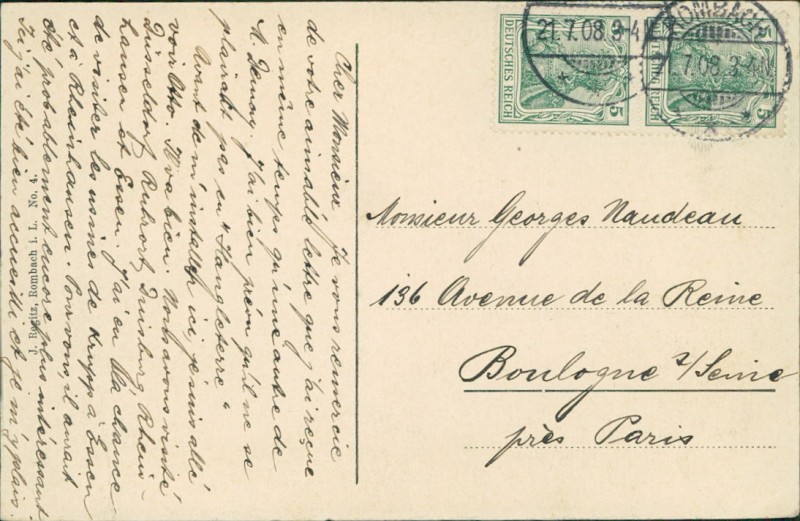 Cher Monsieur Je vous remercie
de votre aimable lettre que j'ai reçue
en même temps qu'une autre de
M. j'ai bien prévu qu'il ne se
plairait pas en "Hangleterre"
Avant de m'installer ici, je suis allé
voir Otto. Il va bien. Nous avons visité
Düsseldorf, Ruhrort, Duisburg, Rhein-
hausen et Essen. J'ai eu la chance
de visiter les usines de Krupp à Essen
et à Rheinhausen. Pour vous, il aurait
été probablement encore plus intéressant
Ici j'ai été bien accueilli et je m'y plais.
J. Rogitz, Rombach i. L. No. 4.
DEUTSCHES REICH
5
DEUTSCHES REICH
5
5
21.7.08.3-4N
ROMBACH
.7.08.3-4N
Monsieur Georges Naudeau
136 Avenue de la Reine
Boulogne s/Seine
près Paris